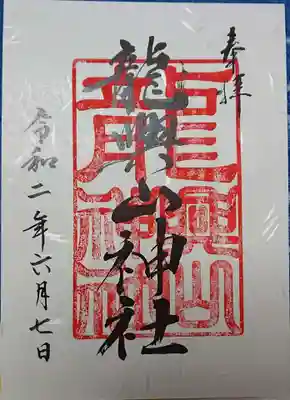 奉拝
龍興山神社
令和二年六月七日
龍興山
神社